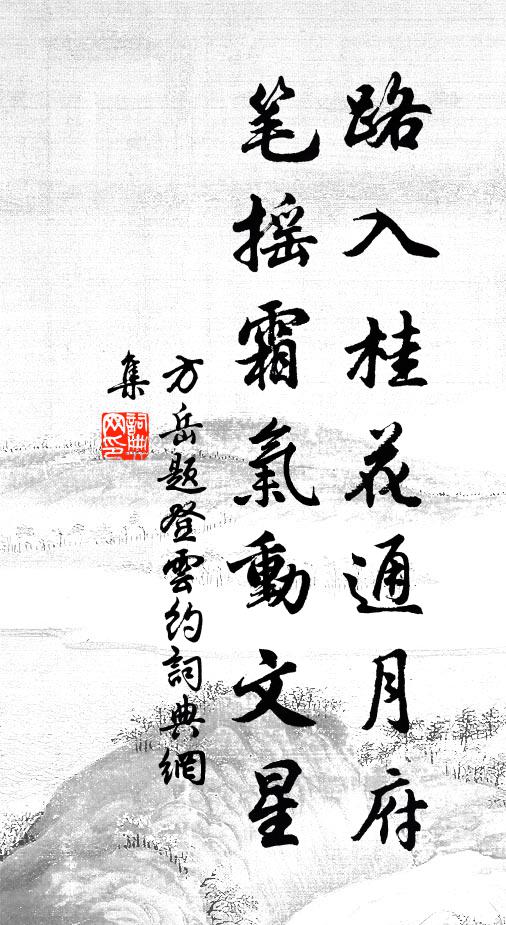 路入桂花通月府
笔摇霜氣動文星
方岳題登雲約詞典網
集
詞典网印